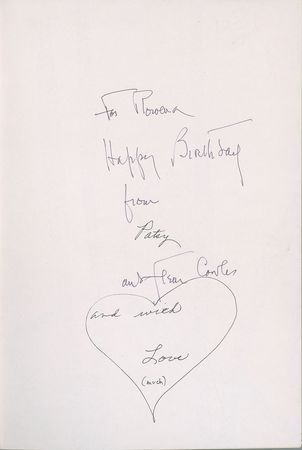 For Rowena
Happy Birthday
from
Patsy
and Fleur Cowles
and with
Love
(much)